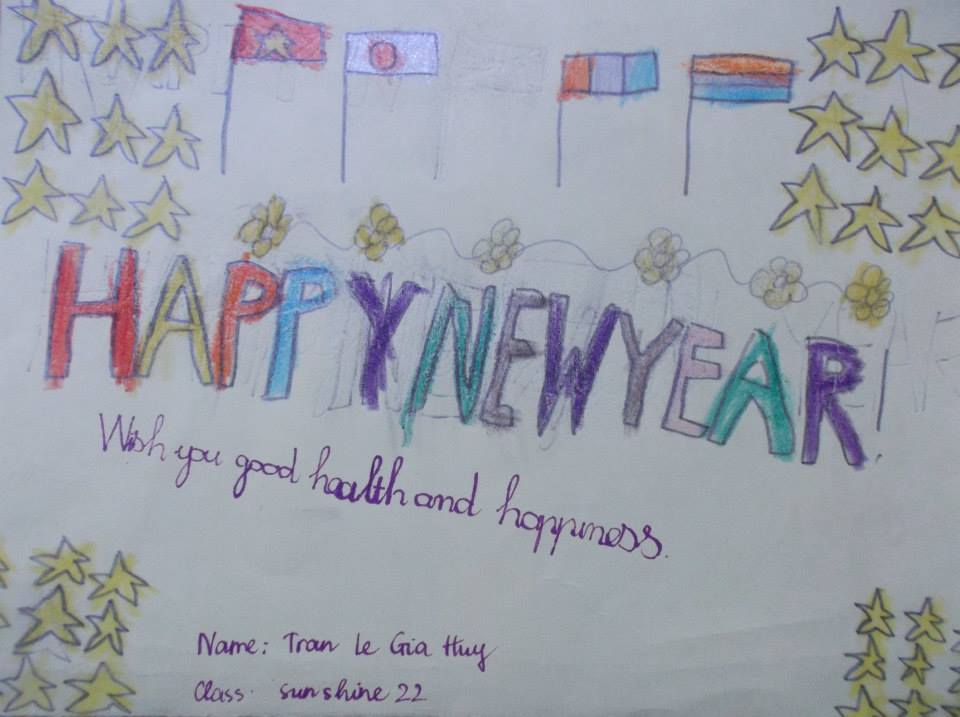 HAPPY NEW YEAR!
Wish you good health and happiness.
Name: Tran Le Gia Huy
Class: sunshine 22